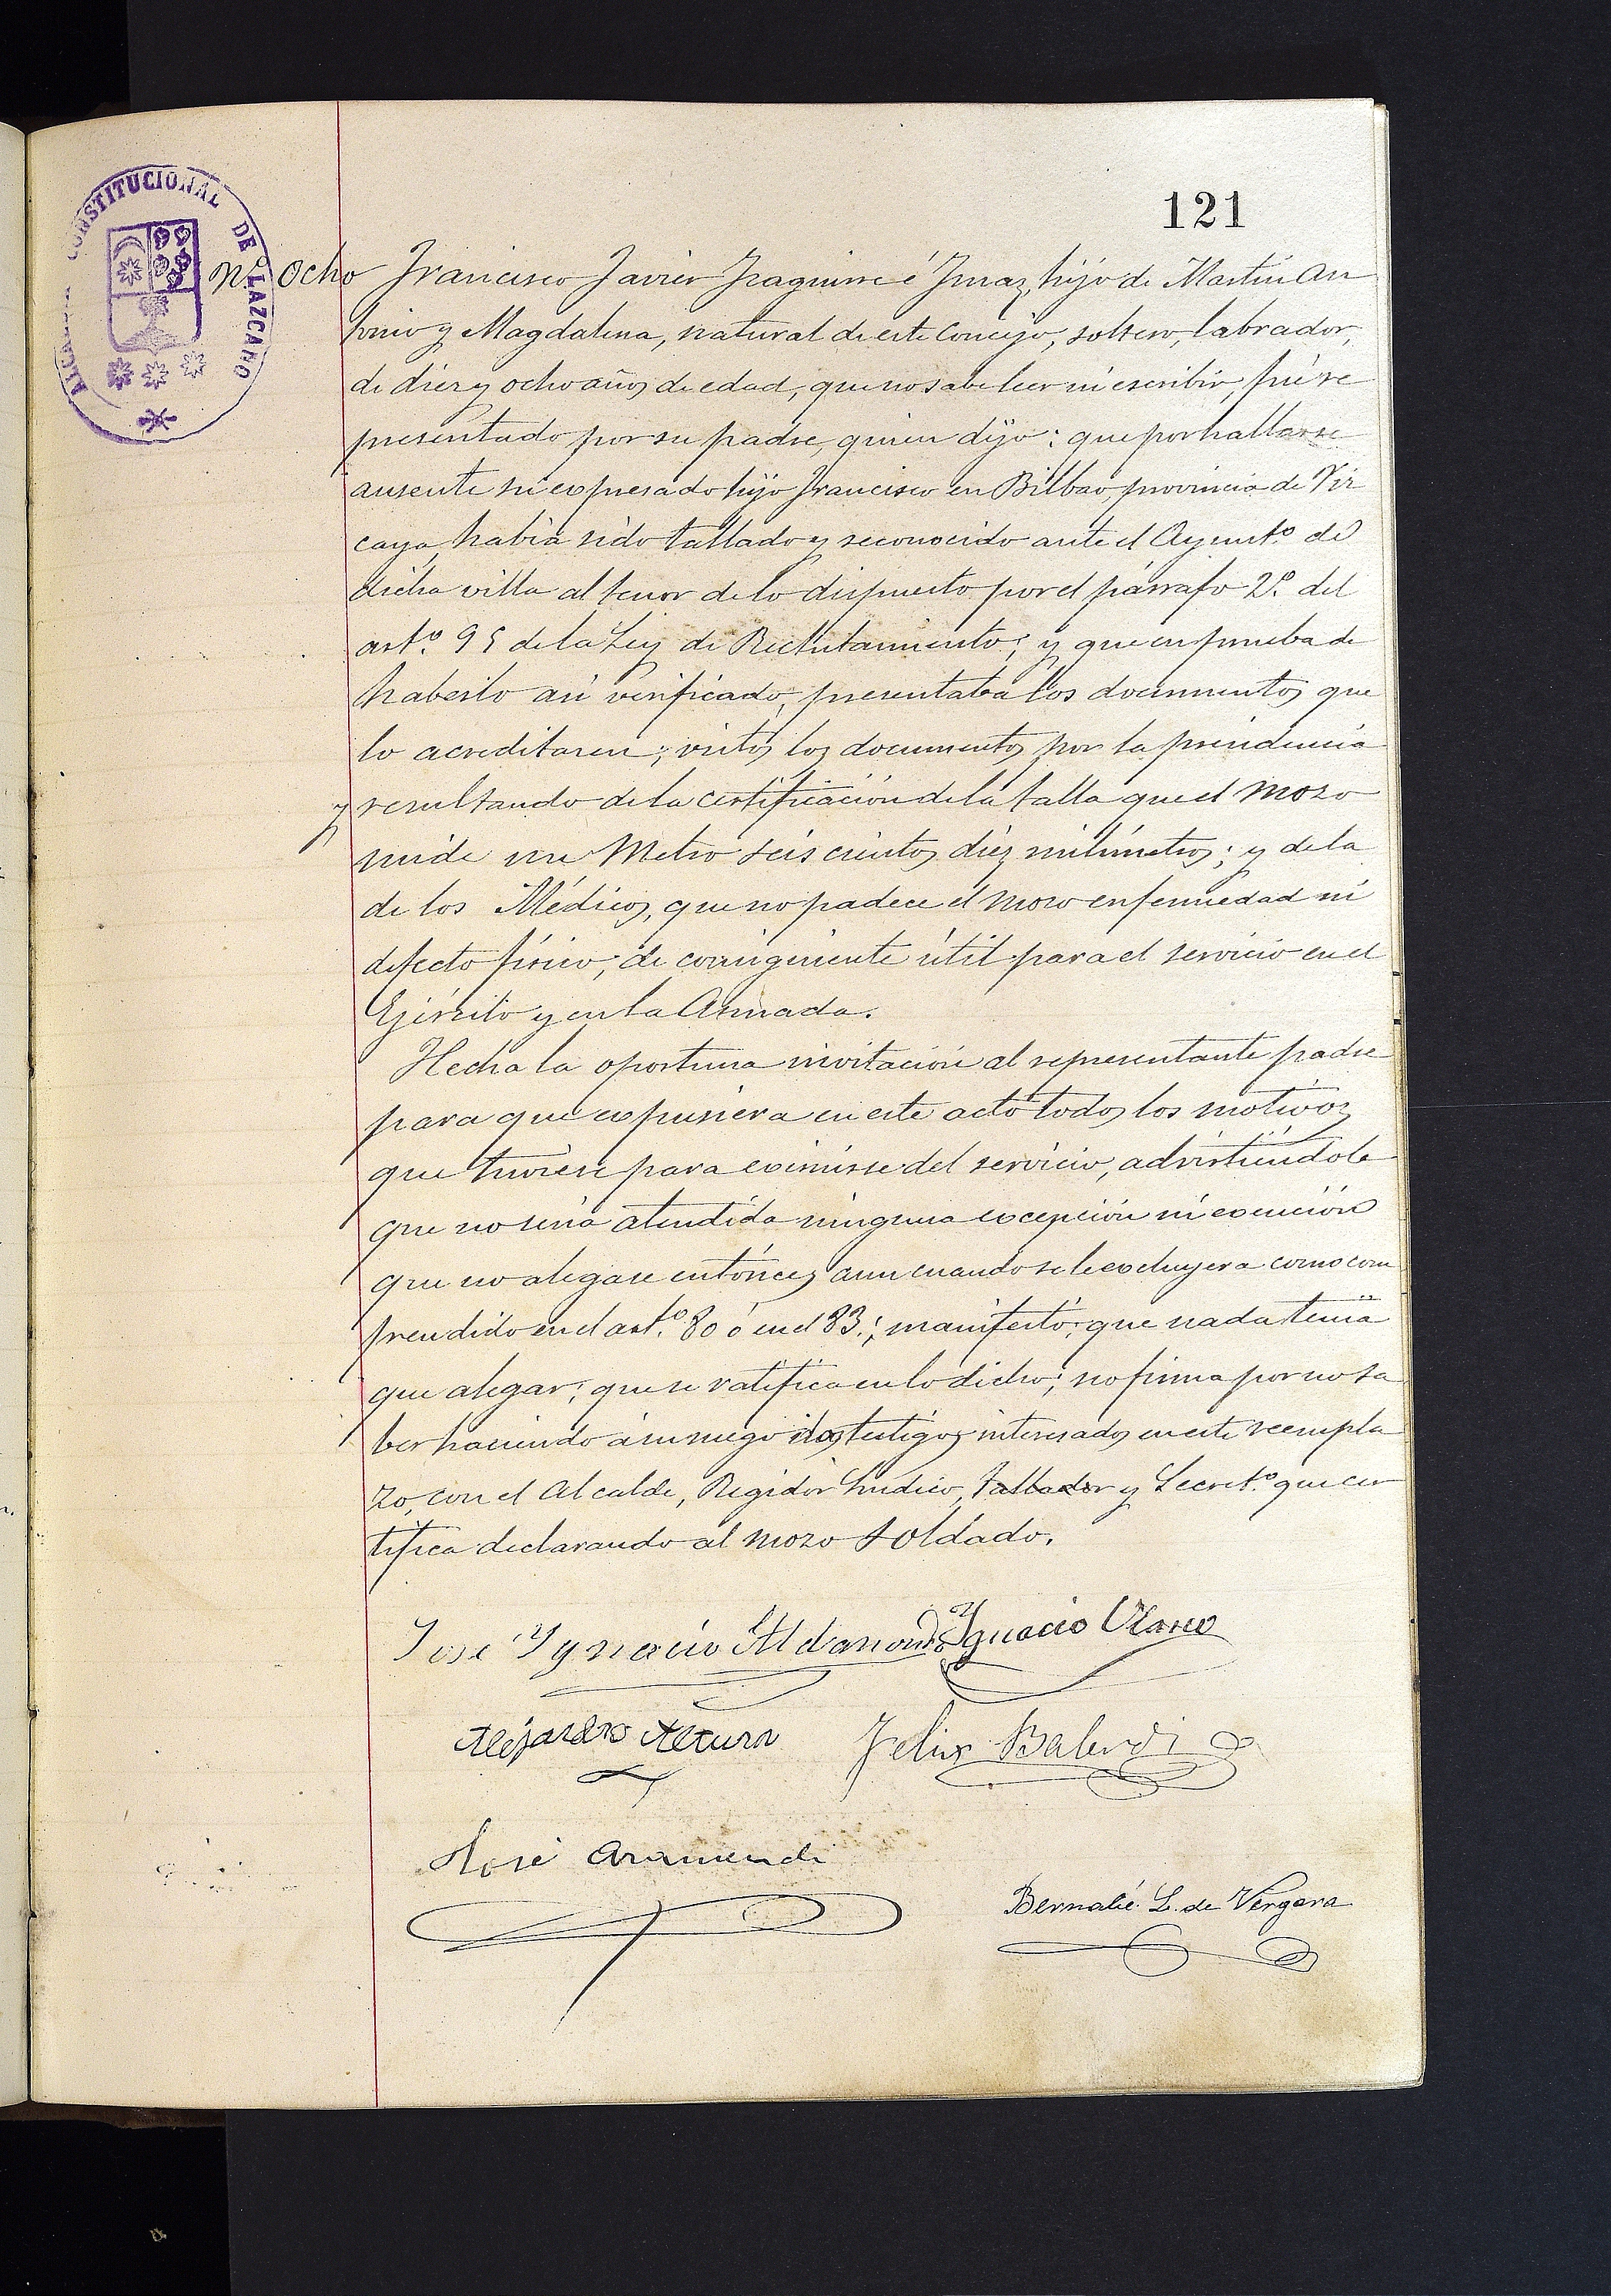 121
ALCALDIA CONSTITUCIONAL DE LAZCANO
Nº Ocho Francisco Javier Iraguirre é Imaz, hijo de Martin An
tonio y Magdalena, natural de este Concejo, soltero, labrador,
de diez y ocho años de edad, que no sabe leer ni escribir, fué re
presentado por su padre, quien dijo: que por hallarse
ausente su expresado hijo Francisco en Bilbao, provincia de Viz
caya, había sido tallado y reconocido ante el Ayuntº de
dicha villa al tenor de lo dispuesto por el párrafo 2º del
artº 95 de la Ley de Reclutamiento; y que en prueba de
haberlo así verificado, presentaba los documentos que
lo acreditaren; vistos los documentos por la presidencia
y resultando de la certificación de la talla que el mozo
mide un Metro seiscientos diez milímetros; y de la
de los Médicos, que no padece el mozo enfermedad ni
defecto físico, de consiguiente útil para el servicio en el
Ejército y en la Armada.
Hecha la oportuna invitación al representante padre
para que expusiera en este acto todos los motivos
que tuviese para eximirse del servicio, advirtiéndole
que no sería atendida ninguna excepción ni exención
que no alegase entónces aun cuando se le excluyera como com
prendido en el artº 80 ó en el 83.; manifestó: que nada tenía
que alegar; que se ratifica en lo dicho; no firma por no sa
ber haciendo á su ruego dos testigos interesados en este reempla
zo, con el Alcalde, Regidor Síndico, tallador y Secretº que cer
tifica declarando al mozo soldado.
José Ygnacio Aldanondo Ygnacio Olano
Alejandro Altuna Felix Balerdi
José Aramendi
Bernabé L. de Vergara